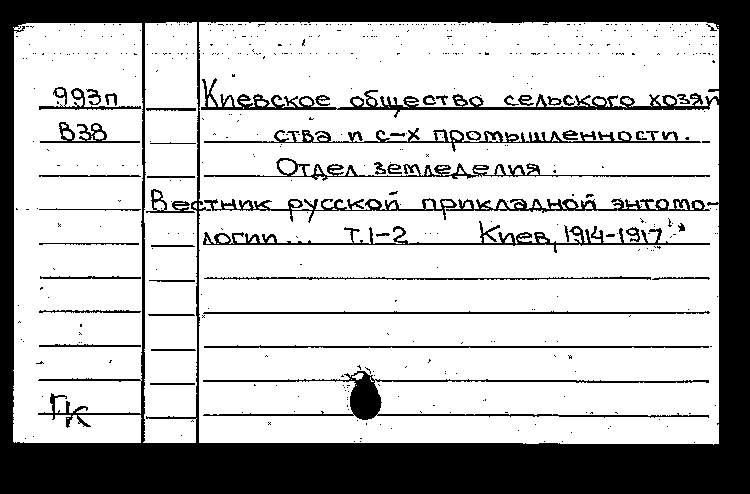 993п Киевское общество сельского хозяй
В38 ства и с-х промышленности.
Отдел земледелия.
Вестник русской прикладной энтомо-
логии... Т.1-2 Киев, 1914-1917
ГК